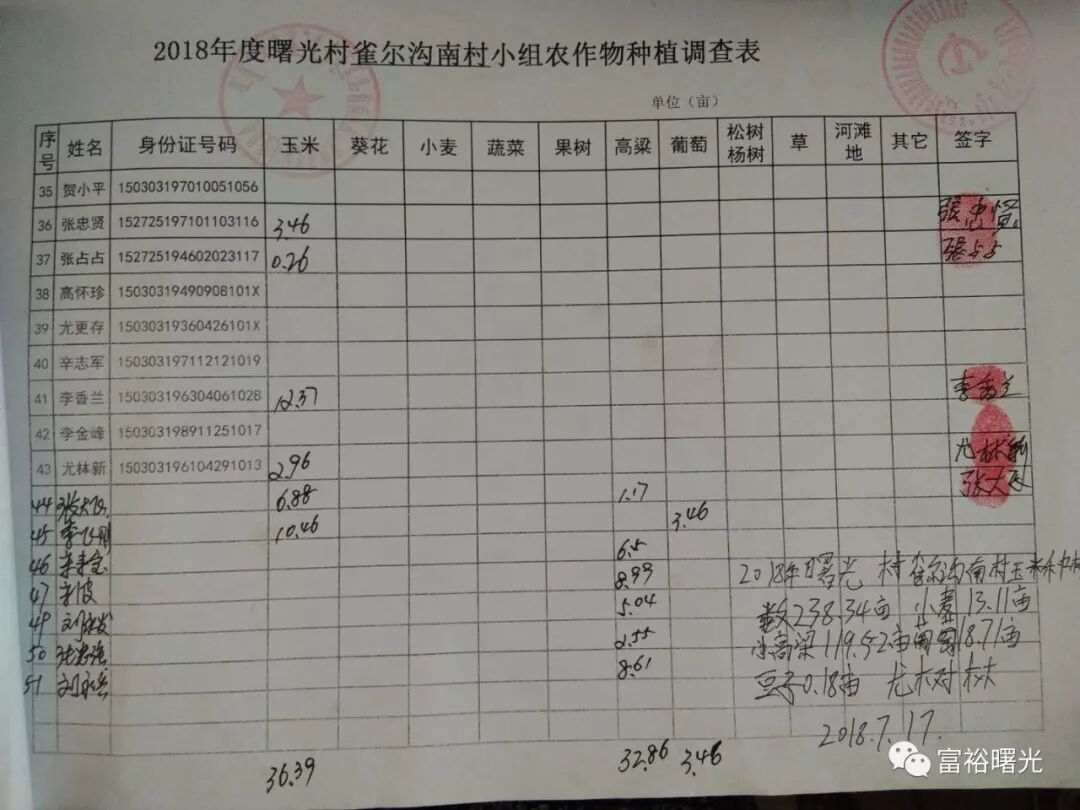 2018年度曙光村雀尔沟南村小组农作物种植调查表
单位（亩）
序号 姓名 身份证号码 玉米 葵花 小麦 蔬菜 果树 高粱 葡萄 松树杨树 草 河滩地 其它 签字
35 贺小平 150303197010051056
36 张忠贤 152725197101103116 3.46 张忠贤
37 张占占 152725194602023117 0.26 张占占
38 高怀珍 15030319490908101X
39 尤更存 15030319360426101X
40 辛志军 150303197112121019
41 李香兰 150303196304061028 12.37 李香兰
42 李金峰 150303198911251017
43 尤林新 150303196104291013 2.96 尤林新
44 6.88 1.17 张大
45 10.46 3.46
46 6.5
47 8.99
49 5.04
50 2.55
51 8.61
2018年曙光村雀尔沟南村玉米
数238.34亩 小麦13.11亩
高粱119.52亩葡萄18.71亩
豆子0.18亩
2018.7.17.
36.39 32.86 3.46
富裕曙光